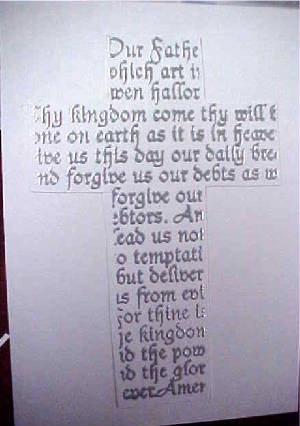 Our Fathe
which art i
wen hallor
hy kingdom come thy will b
one on earth as it is in heave
ive us this day our daily brea
nd forgive us our debts as w
forgive our
ebtors. An
lead us not
o temptati
but deliver
us from evi
for thine is
he kingdom
nd the pow
nd the glor
ever Amen